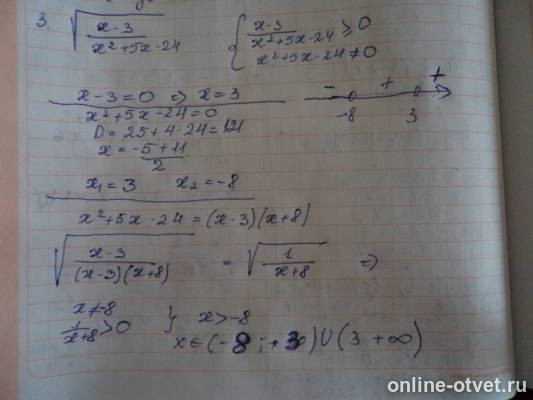 3. √((x-3)/(x²+5x-24)) { (x-3)/(x²+5x-24) ≥ 0
x²+5x-24≠0
x-3=0 => x=3
- + +
-8 3
x²+5x-24=0
D=25+4·24=121
x=(-5+11)/2
x₁=3 x₂=-8
x²+5x-24=(x-3)(x+8)
√((x-3)/((x-3)(x+8))) = √(1/(x+8)) =>
x≠-8
1/(x+8)>0 } x>-8
x∈(-8;+3)∪(3 +∞)
online-otvet.ru